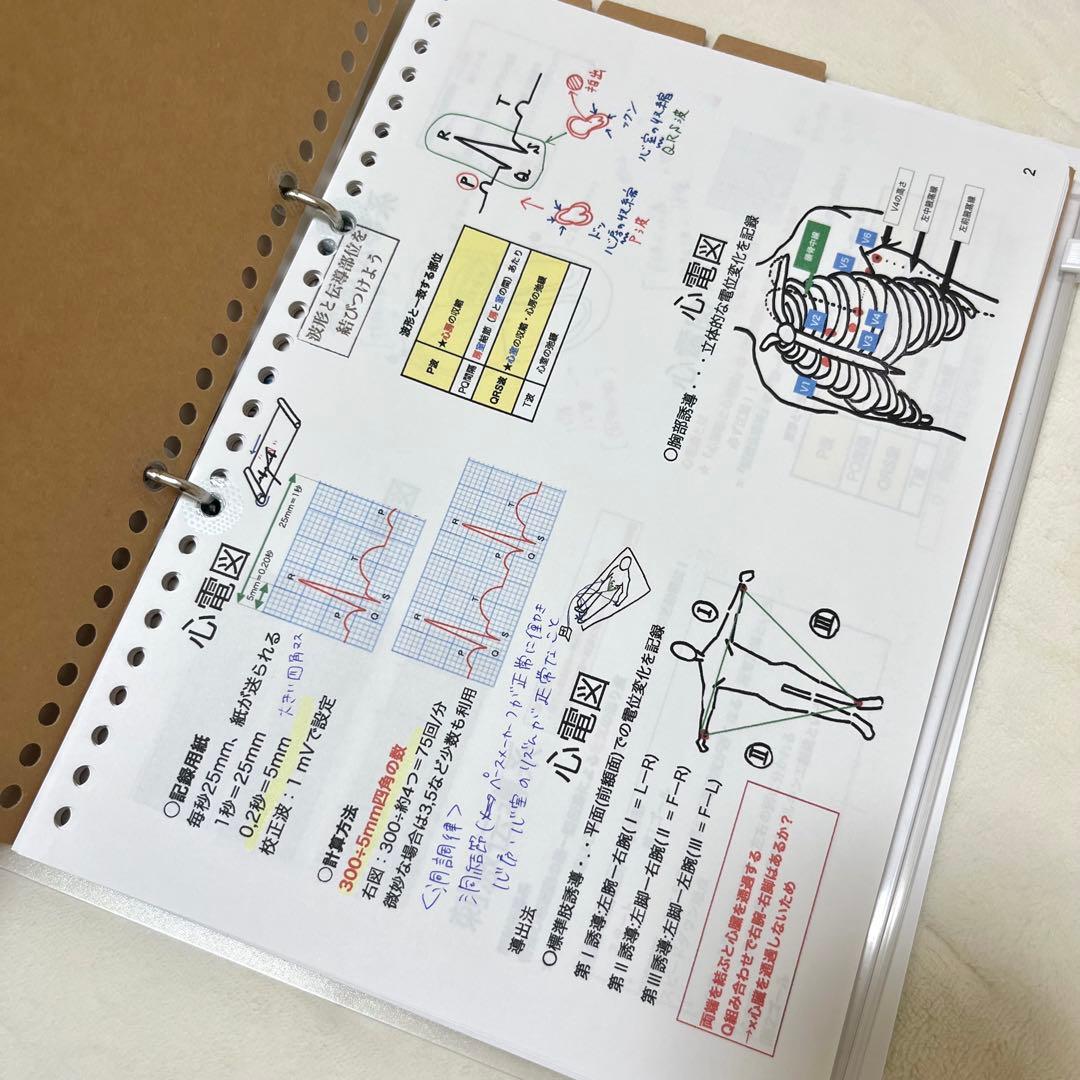 心電図
○記録用紙
毎秒25mm、紙が送られる
1秒=25mm
0.2秒=5mm 大きい四角マス
校正波:1mVで設定
5mm=0.20秒
25mm=1秒
P
Q
R
S
T
P
○計算方法
300÷5mm四角の数
右図:300÷約4つ=75回/分
微妙な場合は3.5など少数も利用
P
Q
R
S
T
P
Q
R
S
T
<洞調律>
洞結節(ペースメーカー)が正常に働き
心房・心室のリズムが正常なこと
波形と伝導部位を
結びつけよう
P
Q
R
S
T
ドッ
心房の収縮
P波
拍出
ックン
心室の収縮
QRS波
波形と一致する部位
P波 ★心房の収縮
PQ間隔 房室結節(房と室の間)あたり
QRS波 ★心室の収縮・心房の弛緩
T波 心室の弛緩
心電図
導出法
○標準肢誘導・・・平面(前額面)での電位変化を記録
第Ⅰ誘導:左腕ー右腕(Ⅰ=L−R)
第Ⅱ誘導:左脚ー右腕(Ⅱ=F−R)
第Ⅲ誘導:左脚ー左腕(Ⅲ=F−L)
両端を結ぶと心臓を通過する
Q組み合わせで右腕-右脚はあるか?
→×心臓を通過しないため
Ⅰ
Ⅱ
Ⅲ
心電図
○胸部誘導・・・立体的な電位変化を記録
鎖骨中線
V1
V2
V3
V4
V5
V6
V4の高さ
左中腋窩線
左前腋窩線
2